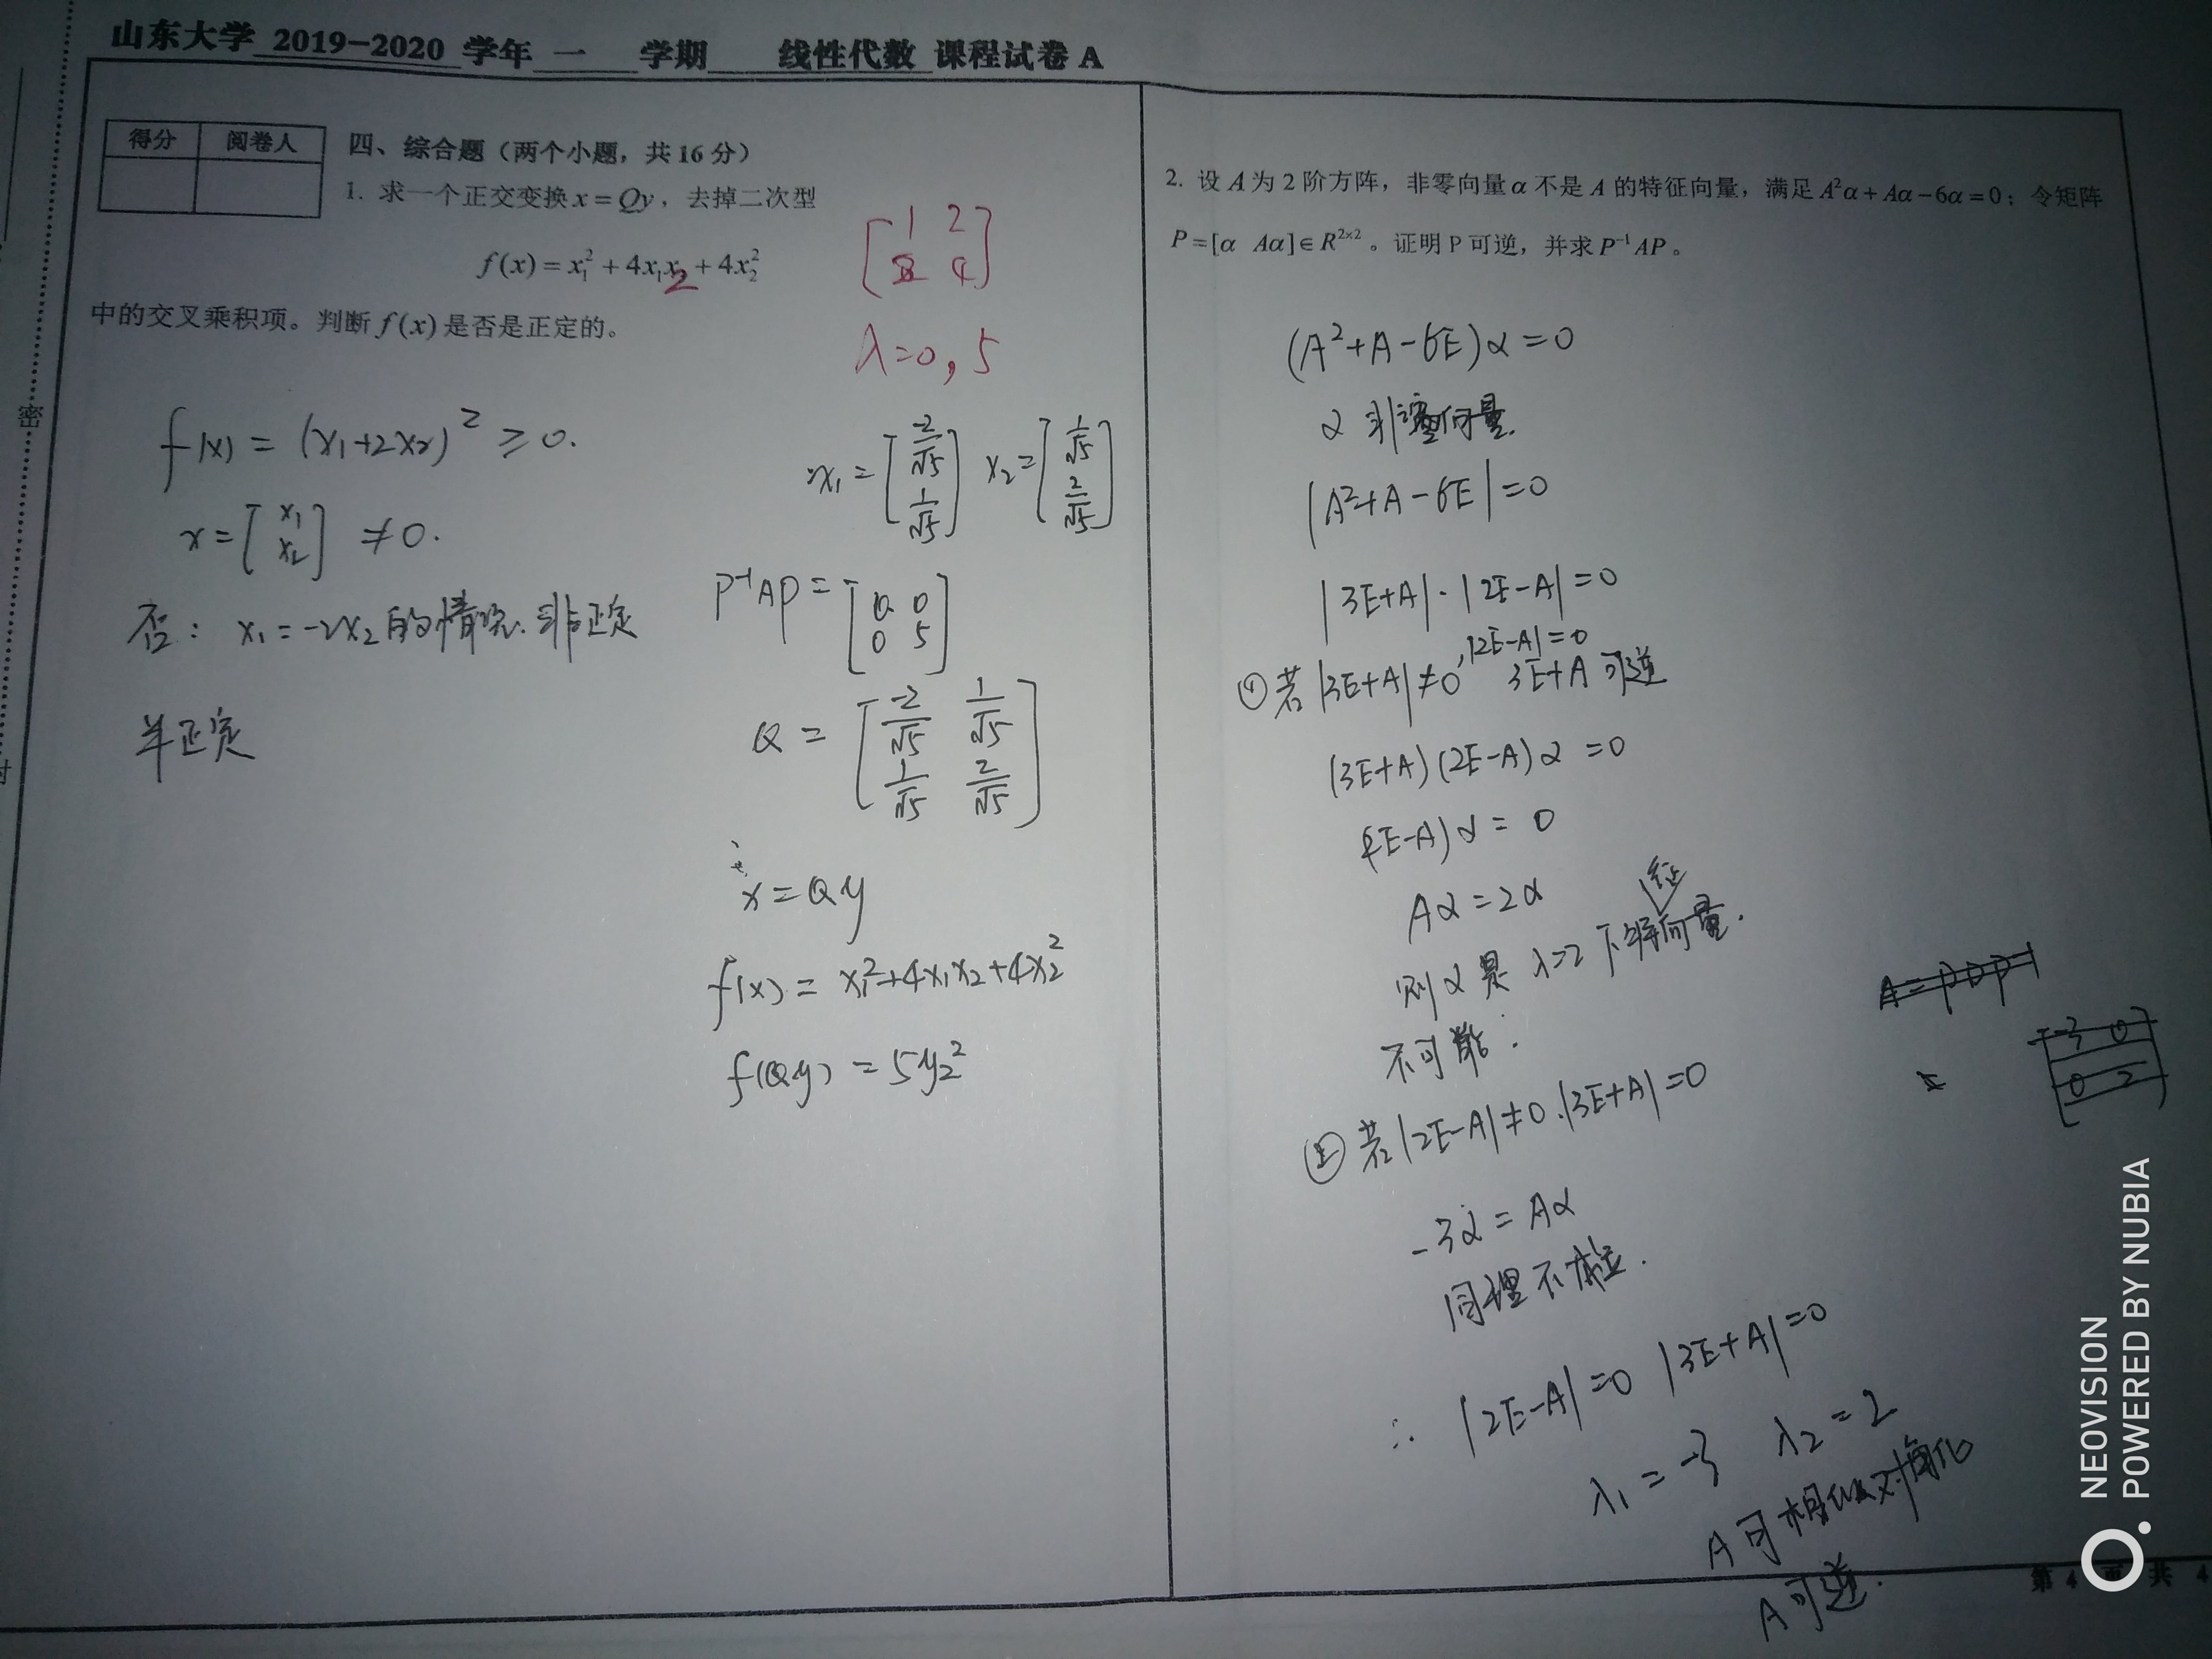 山东大学 2019-2020 学年 一 学期 线性代数 课程试卷 A
得分 阅卷人
四、综合题（两个小题，共 16 分）
1. 求一个正交变换 x = Qy，去掉二次型
f(x) = x₁² + 4x₁x₂ + 4x₂²
中的交叉乘积项。判断 f(x) 是否是正定的。
[1 2
2 4]
λ=0, 5
f(x) = (x₁+2x₂)² ≥ 0.
x = [x₁
x₂] ≠ 0.
否: x₁ = -2x₂ 的情况. 非正定
半正定
x₁ = [-2/√5
1/√5] x₂ = [1/√5
2/√5]
P⁻¹AP = [0 0
0 5]
Q = [-2/√5 1/√5
1/√5 2/√5]
x = Qy
f(x) = x₁²+4x₁x₂+4x₂²
f(Qy) = 5y₂²
2. 设 A 为 2 阶方阵，非零向量 α 不是 A 的特征向量，满足 A²α + Aα − 6α = 0；令矩阵
P = [α Aα] ∈ R²ˣ²。证明 P 可逆，并求 P⁻¹AP。
(A²+A-6E)α = 0
α 非零向量.
|A²+A-6E| = 0
|3E+A|·|2E-A| = 0
① 若|3E+A|≠0, |2E-A|=0 3E+A 可逆
(3E+A)(2E-A)α = 0
(2E-A)α = 0
Aα = 2α
则 α 是 λ=2 下特征向量.
不可能.
② 若|2E-A|≠0.|3E+A|=0
-3α = Aα
同理不成立.
∴ |2E-A|=0 |3E+A|=0
λ₁ = -3 λ₂ = 2
A 可相似对角化
A 可逆.
A = PDP⁻¹
[-3 0
0 2]
密
第 4 页 共 4
NEOVISION
POWERED BY NUBIA